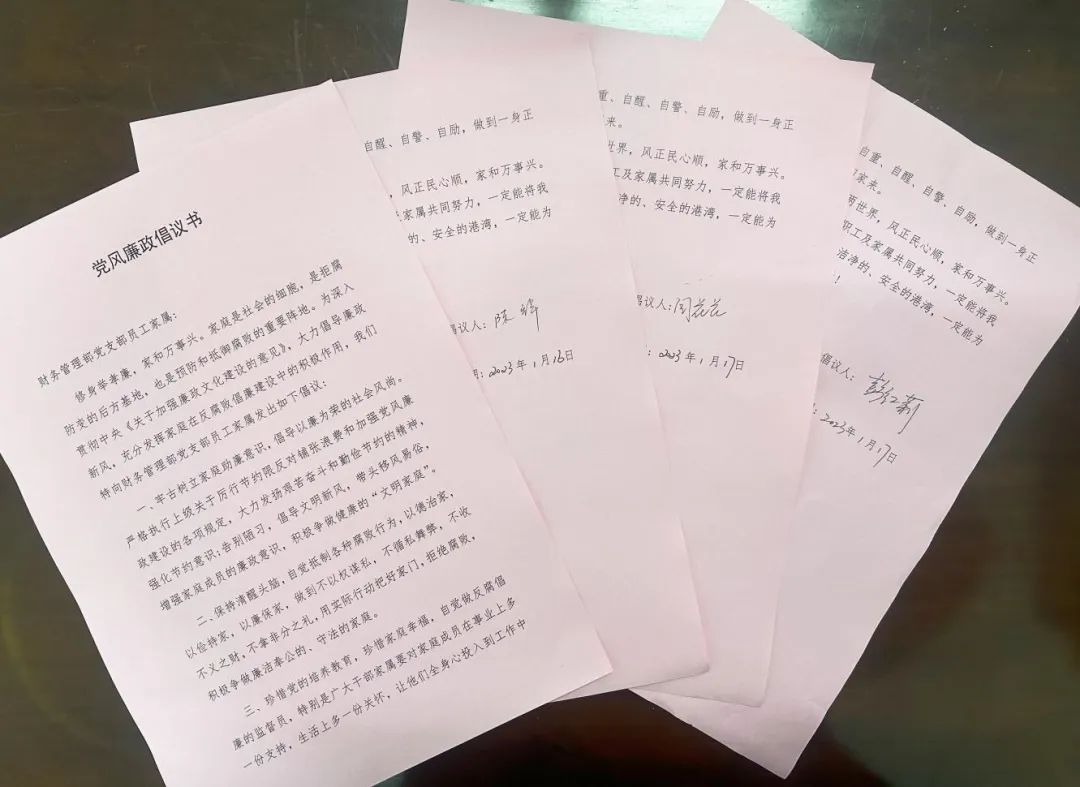 党风廉政倡议书
财务管理部党支部员工家属:
修身举孝廉,家和万事兴。家庭是社会的细胞,是拒腐
防变的后方基地,也是预防和抵御腐败的重要阵地。为深入
贯彻中央《关于加强廉政文化建设的意见》,大力倡导廉政
新风,充分发挥家庭在反腐败倡廉建设中的积极作用,我们
特向财务管理部党支部员工家属发出如下倡议:
一、牢古树立家庭助廉意识,倡导以廉为荣的社会风尚。
严格执行上级关于厉行节约限反对铺张浪费和加强党风廉
政建设的各项规定,大力发扬艰苦奋斗和勤俭节约的精神,
强化节约意识;告别陋习,倡导文明新风,带头移风易俗,
增强家庭成员的廉政意识,积极争做健康的“文明家庭”。
二、保持清醒头脑,自觉抵制各种腐败行为,以德治家,
以俭持家,以廉保家,做到不以权谋私,不循私舞弊,不收
不义之财,不拿非分之礼,用实际行动把好家门,拒绝腐败,
积极争做廉洁奉公的、守法的家庭。
三、珍惜党的培养教育,珍惜家庭幸福,自觉做反腐倡
廉的监督员,特别是广大干部家属要对家庭成员在事业上多
一份支持,生活上多一份关怀,让他们全身心投入到工作中
自醒、自警、自励,做到一身正
,风正民心顺,家和万事兴。
家属共同努力,一定能将我
的、安全的港湾,一定能为
倡议人:陈
:2023年1月16日
重、自醒、自警、自励,做到一身正
来。
世界,风正民心顺,家和万事兴。
工及家属共同努力,一定能将我
净的、安全的港湾,一定能为
倡议人:周花花
:2023年1月17日
自重、自醒、自警、自励,做到一身正
家来。
两世界,风正民心顺,家和万事兴。
职工及家属共同努力,一定能将我
洁净的、安全的港湾,一定能为
!
倡议人:彭红新
:2023年1月17日